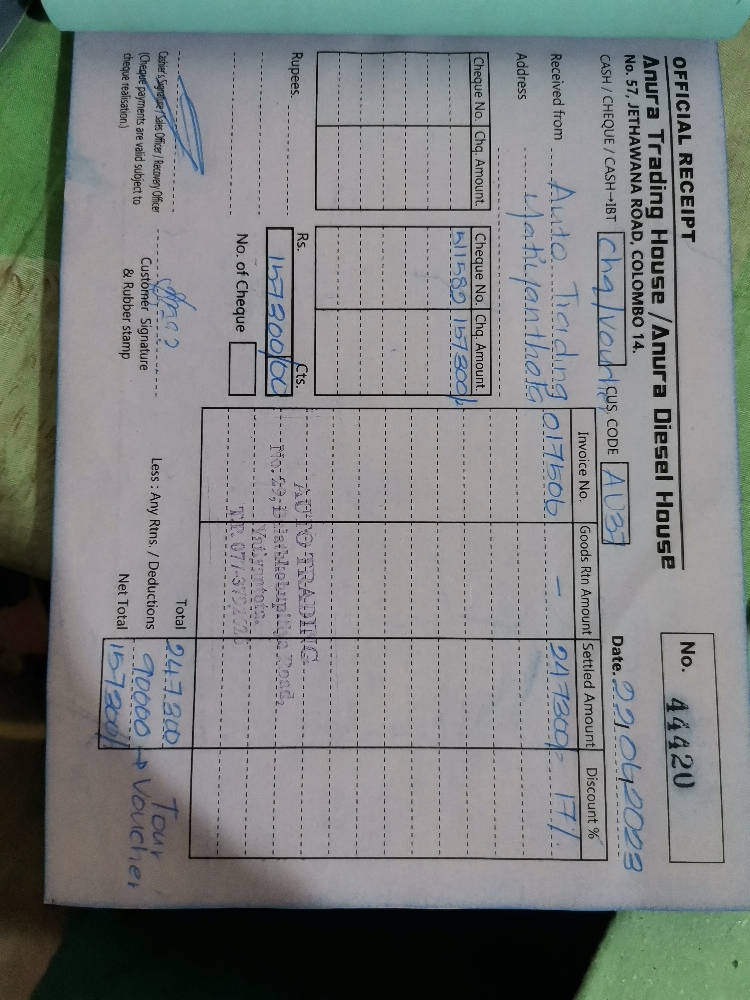 OFFICIAL RECEIPT
Anura Trading House / Anura Diesel House
No. 57, JETHAWANA ROAD, COLOMBO 14.
No. 44420
CASH / CHEQUE / CASH→IBT Chq/Voucher CUS. CODE AU37
Date. 22.06.2023
Received from Auto Trading
Address Yatiyanthota
Cheque No. Chq. Amount.
Cheque No. Chq. Amount.
511582 157300/-
Invoice No. Goods Rtn Amount Settled Amount Discount %
017506 - 247300/- 17%
Rupees
Rs. Cts.
157300/00
No. of Cheque
AUTO TRADING
No. 29,
Road,
Yatiyantota.
T.P. 077-
Total 247300
Less : Any Rtns. / Deductions 90000 → Tour Voucher
Net Total 157300/-
Cashier's Signature / Sales Officer / Recovery Officer
(Cheque payments are valid subject to
cheque realisation.)
Customer Signature
& Rubber stamp